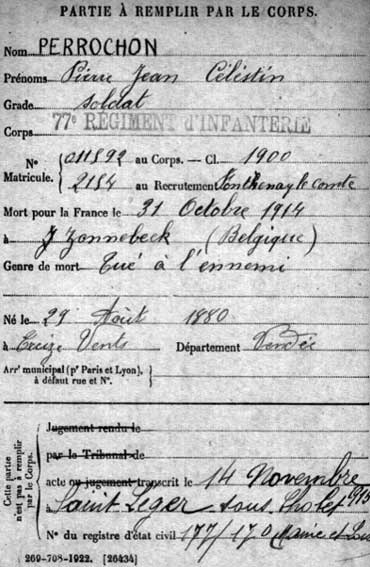 PARTIE À REMPLIR PAR LE CORPS.
Nom PERROCHON
Prénoms Pierre Jean Célestin
Grade soldat
Corps 77e RÉGIMENT d'INFANTERIE
N° Matricule. 011592 au Corps. — Cl. 1900
2154 au Recrutement Fonthenay le comte
Mort pour la France le 31 Octobre 1914
à Zonnebeck (Belgique)
Genre de mort Tué à l'ennemi
Né le 29 Août 1880
à Treize Vents Département Vendée
Arrt municipal (pr Paris et Lyon), à défaut rue et N°.
Cette partie n'est pas à remplir par le Corps.
Jugement rendu le
par le Tribunal de
acte ou jugement transcrit le 14 Novembre 1915
à Saint Leger sous Cholet
N° du registre d'état civil 177/170 Maine et Loire
269-708-1922. [26434]